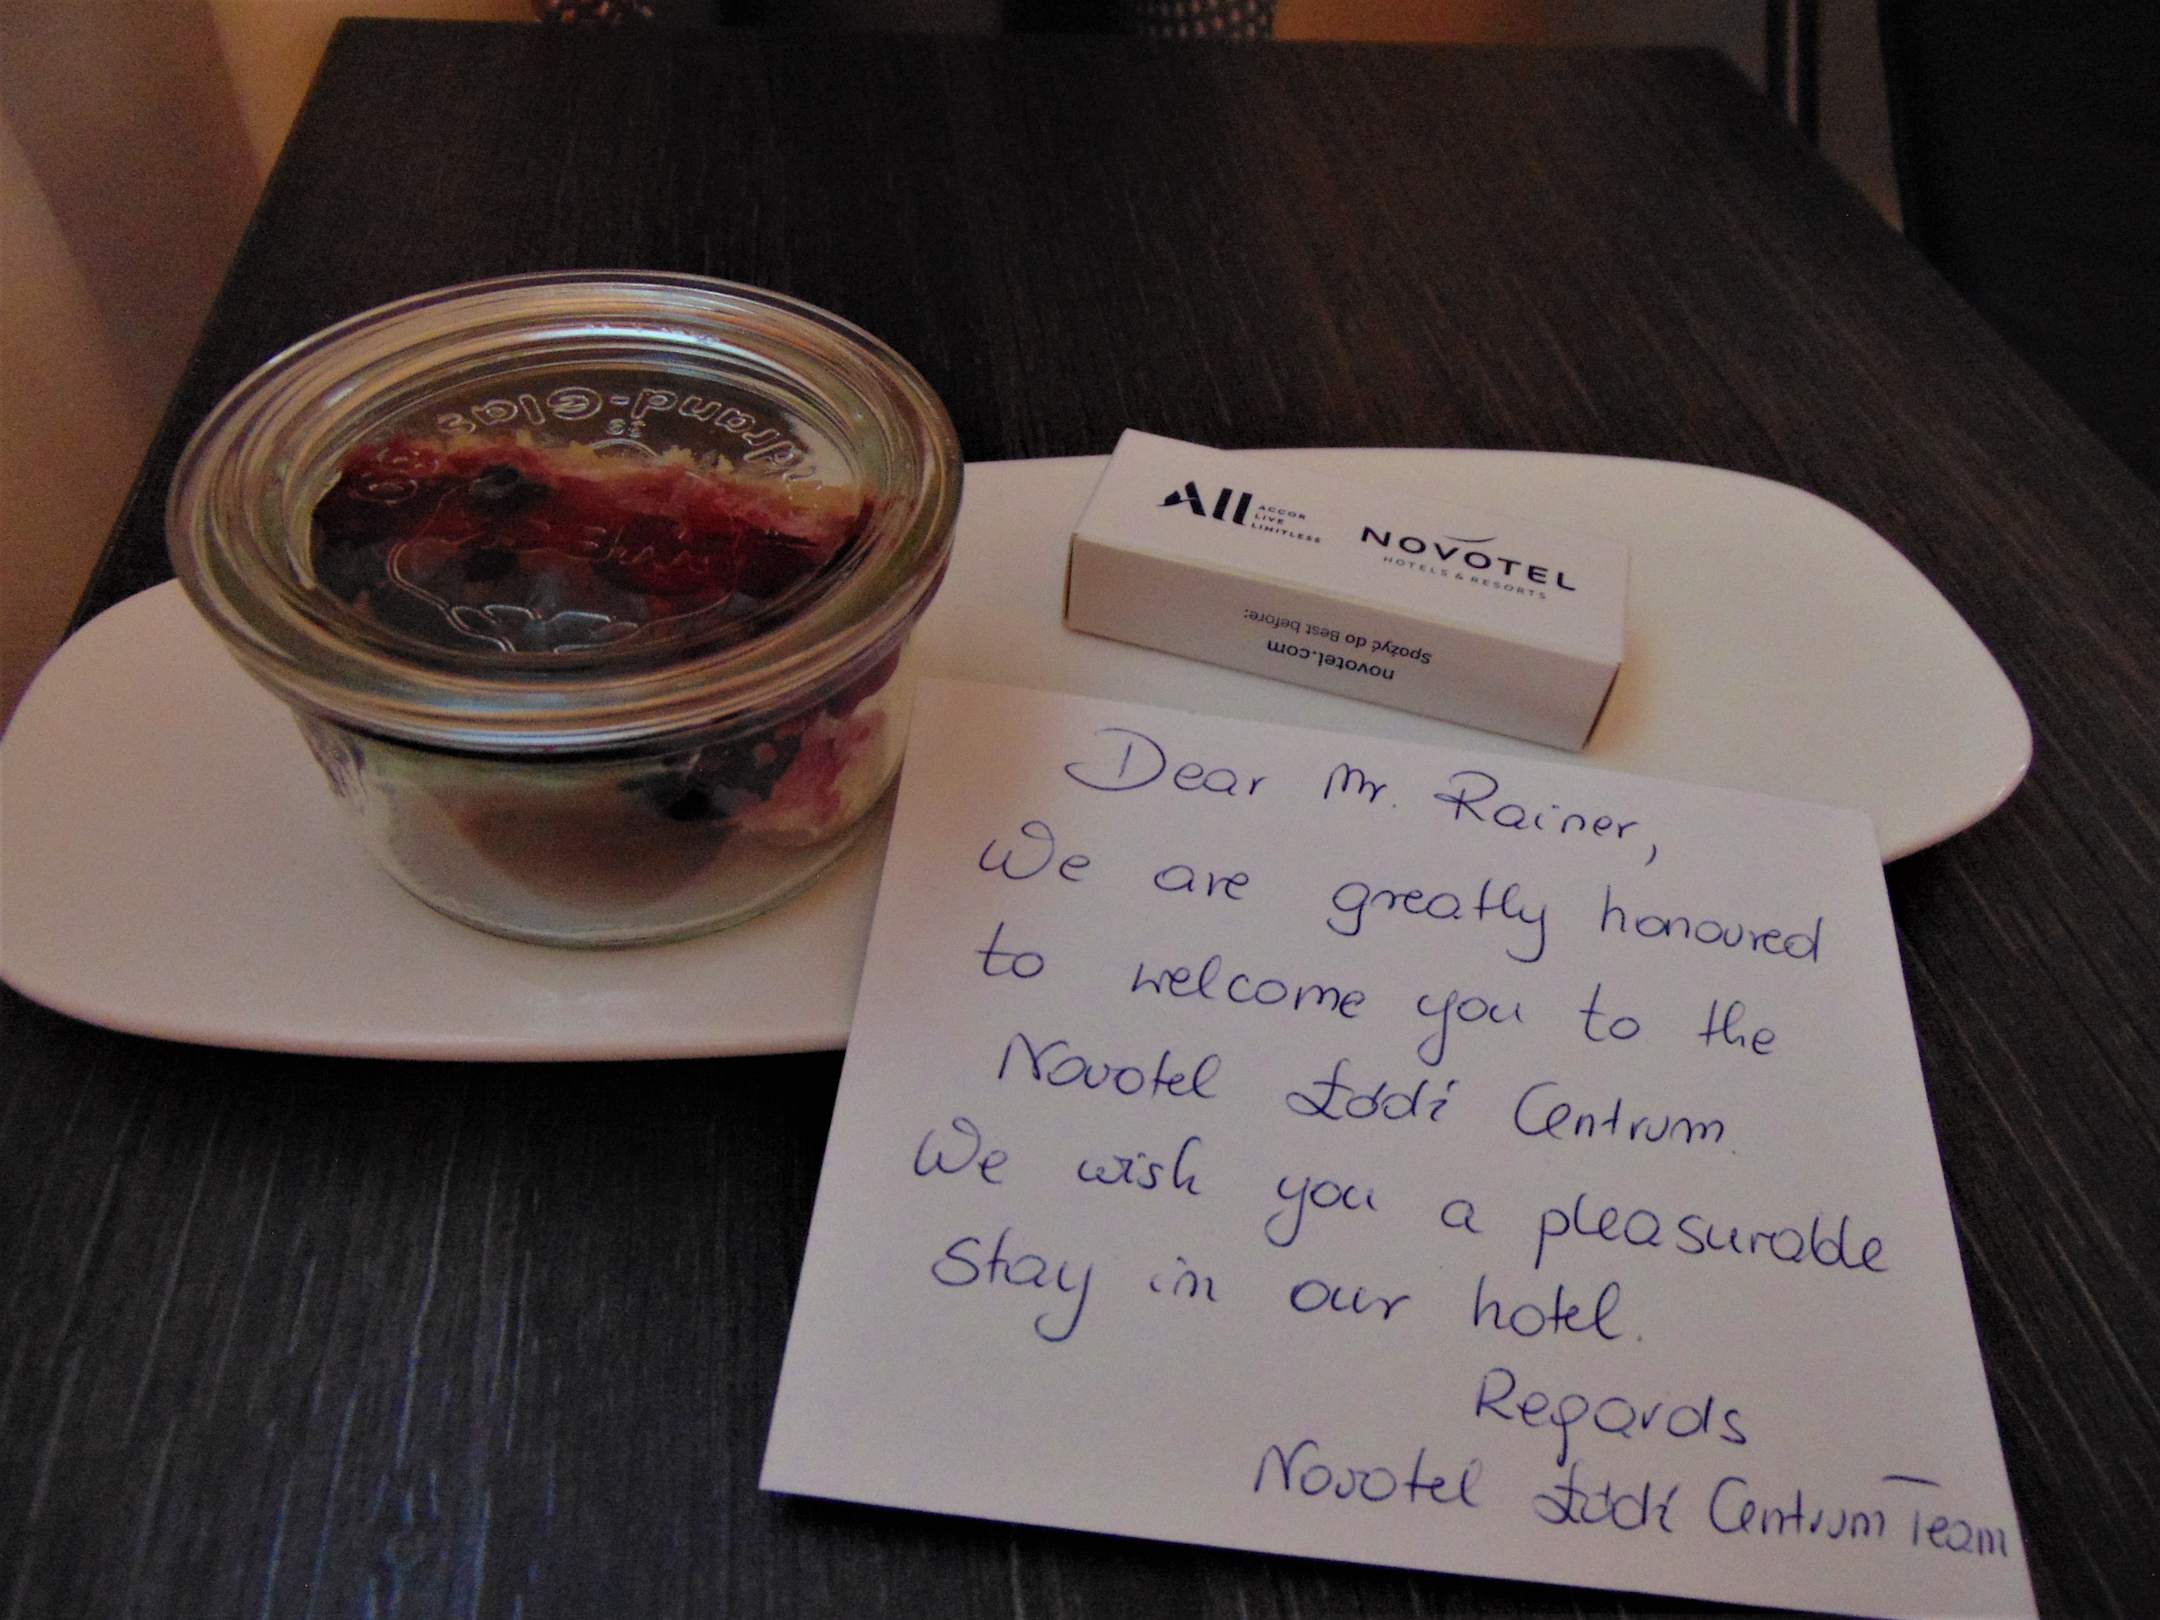 Rundrand-Glas
All ACCOR
LIVE
LIMITLESS
NOVOTEL
HOTELS & RESORTS
Spożyć do Best before:
novotel.com
Dear Mr. Rainer,
We are greatly honoured
to welcome you to the
Novotel Łódź Centrum.
We wish you a pleasurable
stay in our hotel.
Regards
Novotel Łódź Centrum Team